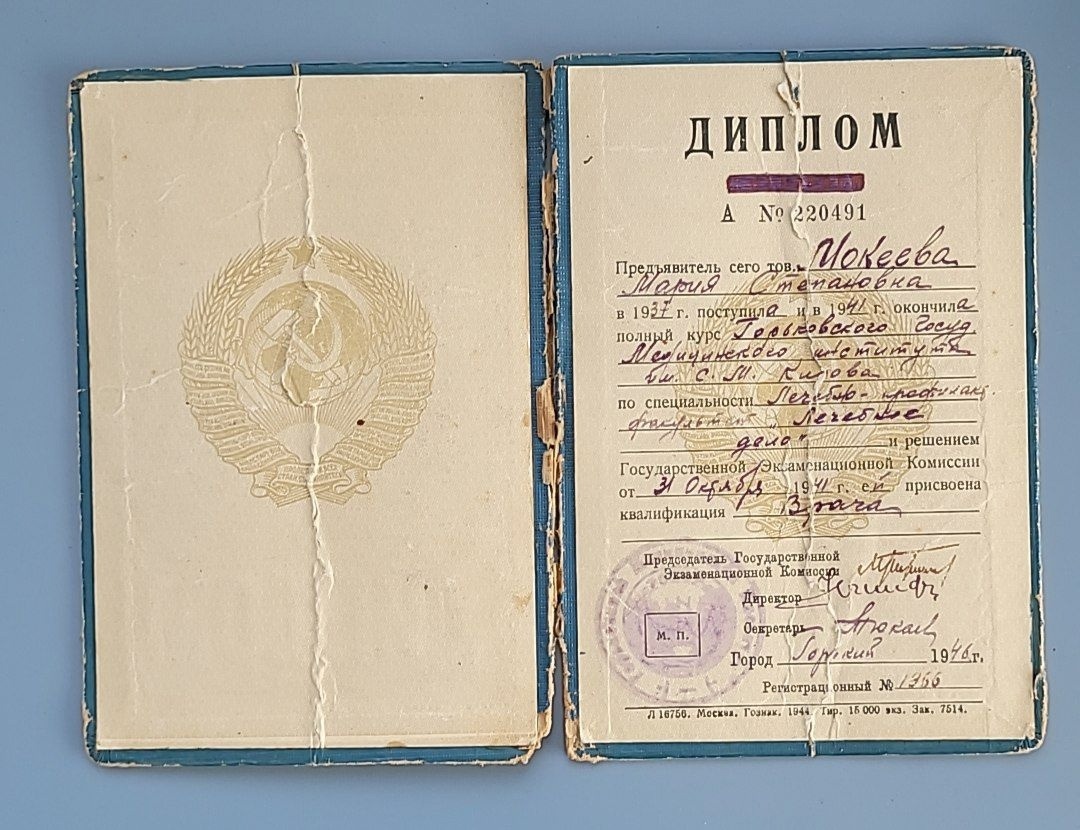 ДИПЛОМ
А № 220491
Предъявитель сего тов. Мокеева
Мария Степановна
в 1937 г. поступила и в 1941 г. окончила
полный курс Горьковского Госуд.
Медицинского института
им. С. М. Кирова
по специальности Лечебно-профилакт.
факультет „Лечебное
дело" и решением
Государственной Экзаменационной Комиссии
от 31 Октября 1941 г. ей присвоена
квалификация Врача
Председатель Государственной
Экзаменационной Комиссии
Директор
Секретарь
М. П.
Город Горький 1946 г.
Регистрационный № 1366
Л 16756. Москва. Гознак. 1944. Тир. 15 000 экз. Зак. 7514.